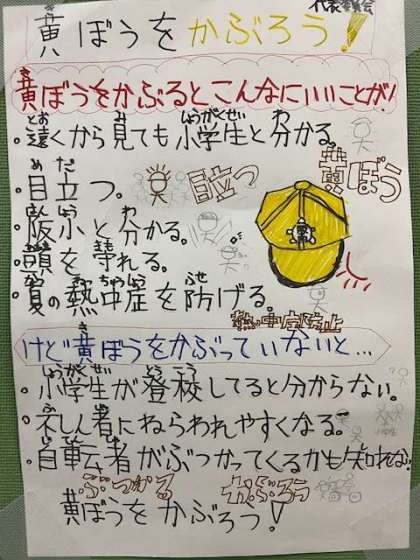 代表委員会
黄ぼうをかぶろう!
黄ぼうをかぶるとこんなにいいことが!
・遠くから見ても小学生と分かる。
・目立つ。
目立つ
黄ぼう
・阪小と分かる。
・頭を守れる。
・夏の熱中症を防げる。
熱中症防止
けど黄ぼうをかぶっていないと…
・小学生が登校してると分からない。
・不しん者にねらわれやすくなる。
・自転車がぶつかってくるかも知れない
ぶつかる
かぶろう
黄ぼうをかぶろう!